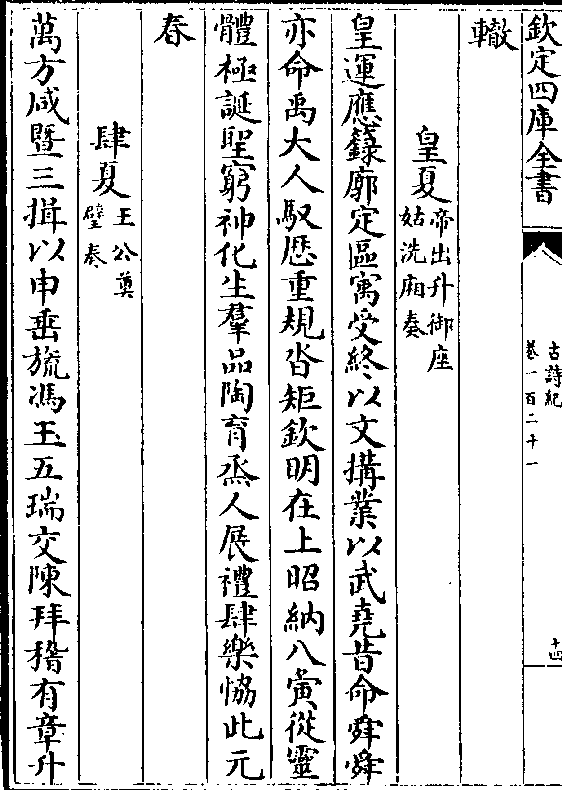 欽定四庫全書
古詩紀
卷一百二十一
十四
轍
皇夏帝出升御座
姑洗廂奏
皇運應籙廓定區寓受終以文搆業以武堯昔命舜舜
亦命禹大人馭歴重規沓矩欽明在上昭納八夤從靈
體極誕聖窮神化生羣品陶育烝人展禮肆樂恊此元
春
肆夏王公奠
璧奏
萬方咸曁三揖以申垂旒馮玉五瑞交陳拜稽有章升